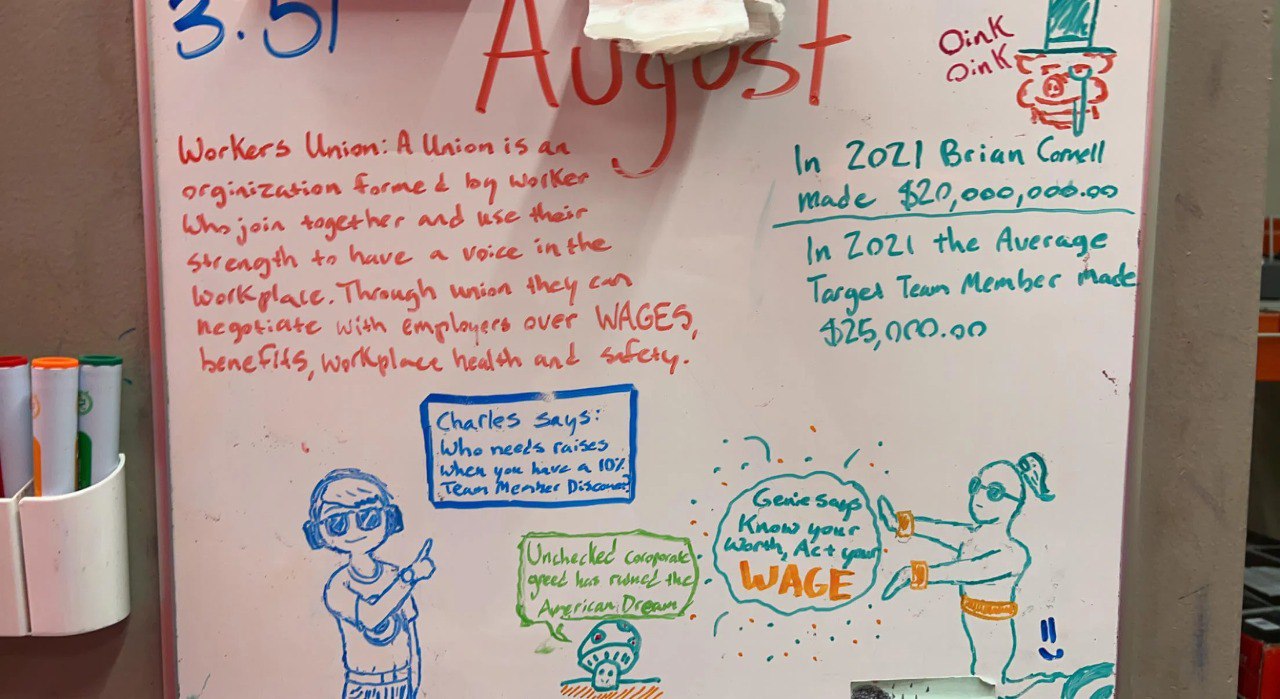 3.51
August
Oink
Oink
Workers Union: A Union is an
orginization formed by worker
Who join together and use their
strength to have a voice in the
workplace. Through union they can
negotiate with employers over WAGES,
benefits, workplace health and safety.
In 2021 Brian Cornell
made $20,000,000.00
In 2021 the Average
Target Team Member made
$25,000.00
Charles says:
Who needs raises
when you have a 10%
Team Member Discount
Unchecked coroporate
greed has ruined the
American Dream
Genie says
Know your
Worth, Act your
WAGE